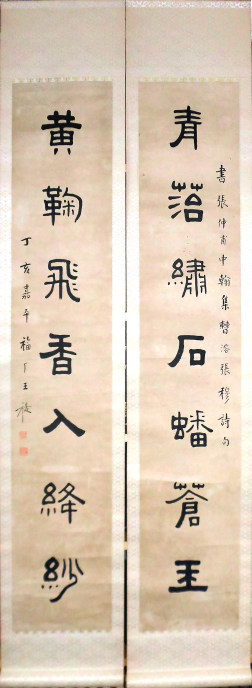 書張仲甫中翰集曹溶張穆詩句
青落繡石蟠蒼玉
黃鞠飛香入絳紗
丁亥嘉平福厂王禔